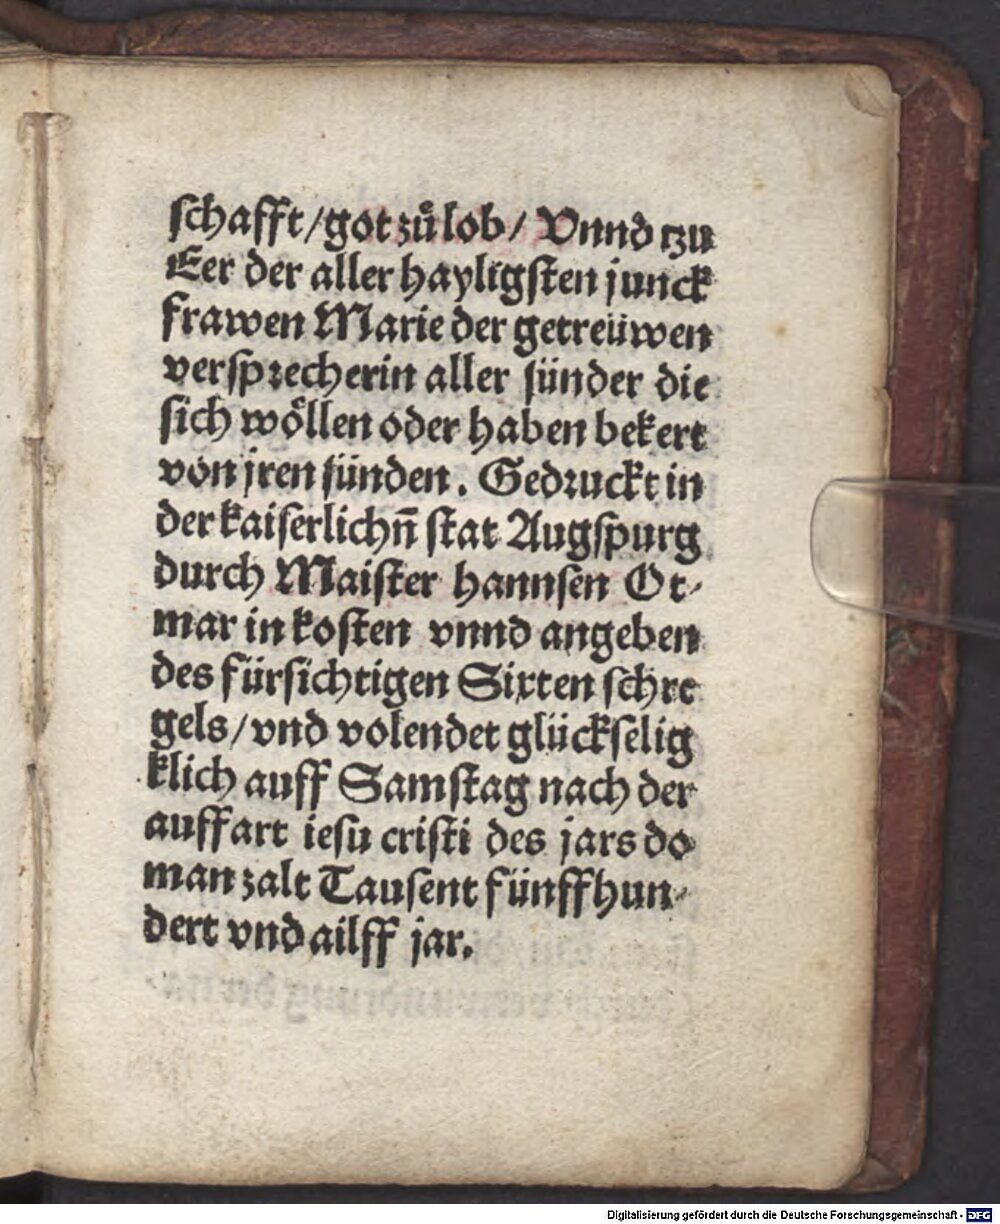 ſchafft/got zuͦ lob/ Vnnd tzu
Eer der aller hayligſten junck
frawen Marie der getreüwen
verſprecherin aller ſünder die
ſich woͤllen oder haben bekert
von jren ſünden. Gedruckt in
der kaiſerlichn̄ ſtat Augſpurg
durch Maiſter hannſen Ot⸗
mar in koſten vnnd angeben
des fürſichtigen Sixten ſchre
gels/vnd volendet glückſelig
klich auff Samſtag nach der
auffart ieſu criſti des jars do
man zalt Tauſent fünffhun⸗
dert vnd ailff jar.
Digitalisierung gefördert durch die Deutsche Forschungsgemeinschaft - DFG